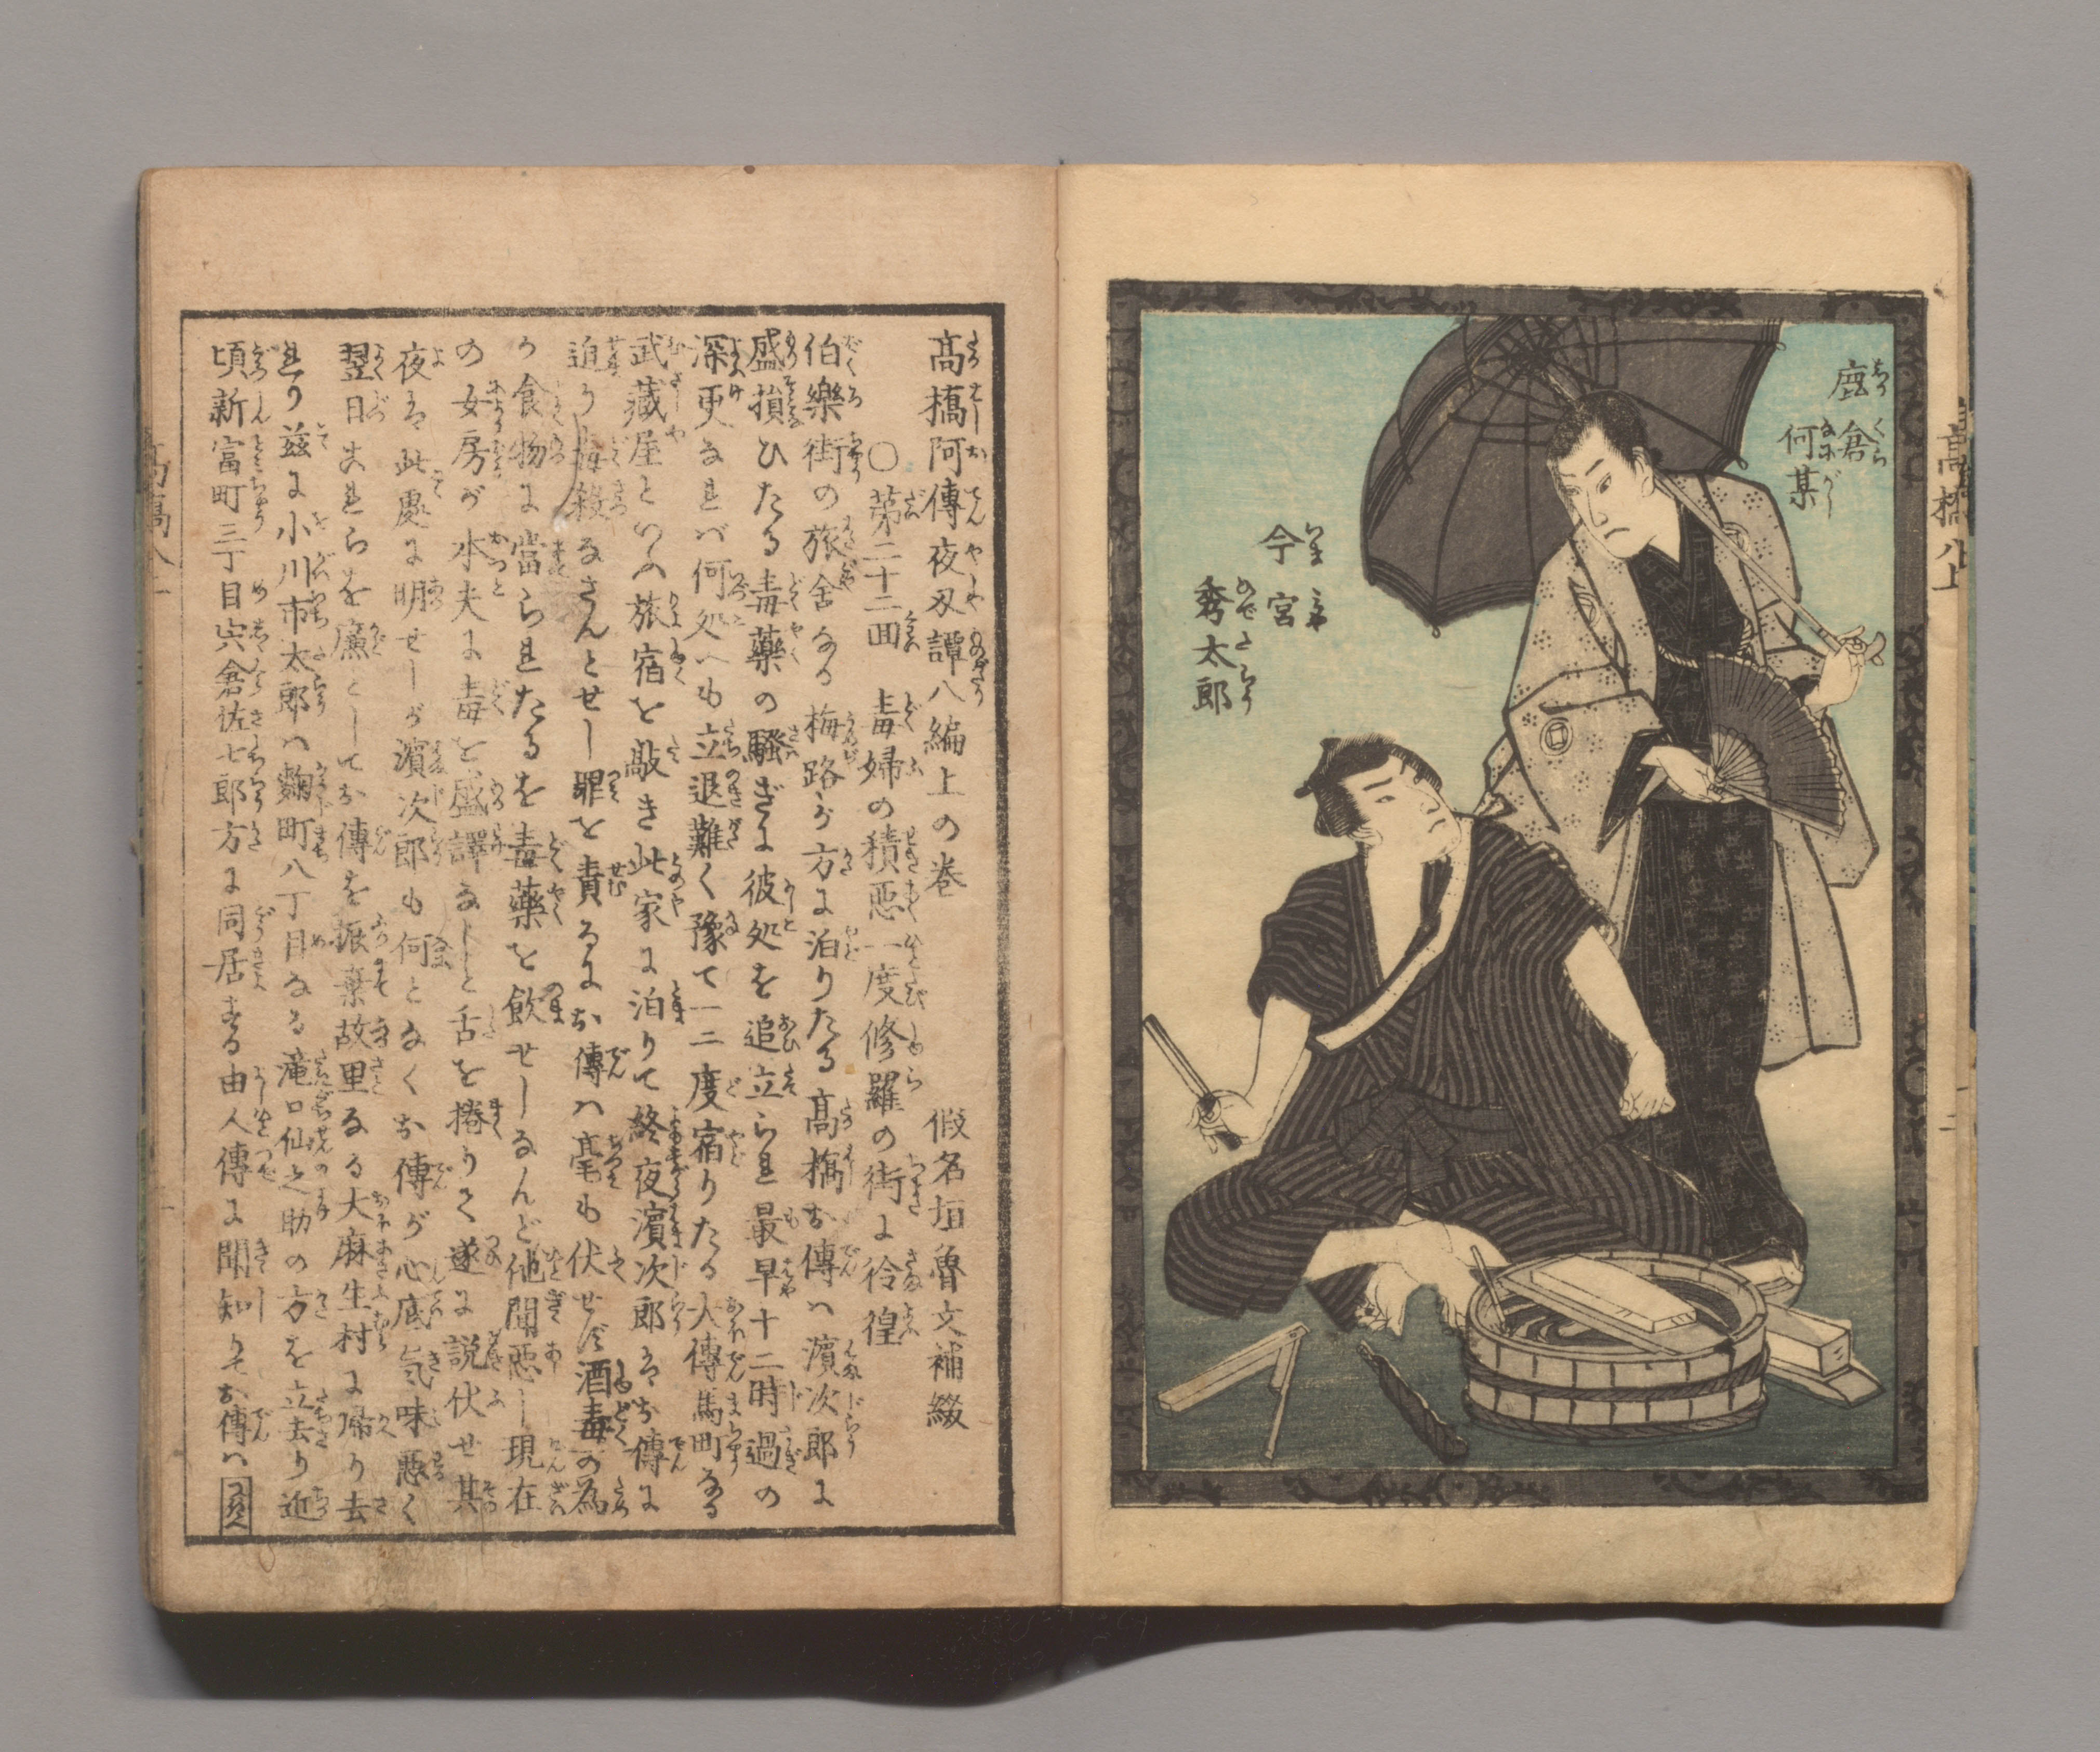 高橋八上
鹿倉
何某
今宮
秀太郎
高橋阿傳夜刄譚八編上の巻　假名垣魯文補綴
〇第二十二回　毒婦の積惡一度修羅の街に彷徨
伯樂街の旅舍なる梅路が方に泊りたる高橋お傳ハ濱次郎に
盛損ひたる毒藥の騒ぎに彼処を追立られ最早十二時過の
深更なれバ何処へも立退難く豫て一二度宿りたる大傳馬町なる
武藏屋といふ旅宿を敲き此家に泊りて終夜濱次郎はお傳に
迫り毒殺なさんとせし罪を責るにお傳ハ毫も伏せず酒毒の為
か食物に當られたるを毒藥を飲せしなんど他聞惡し現在
の女房が水夫に毒を盛譯なしと舌を捲りて遂に説伏せ其
夜は此處に明せしが濱次郎も何となくお傳が心底気味悪く
翌日これらを廉としてお傳を振棄故里なる大麻生村に帰り去
れり茲に小川市太郎ハ麹町八丁目なる滝口仙之助の方を立去り近
頃新富町三丁目宍倉佐七郎方に同居する由人傳に聞知りてお傳ハ